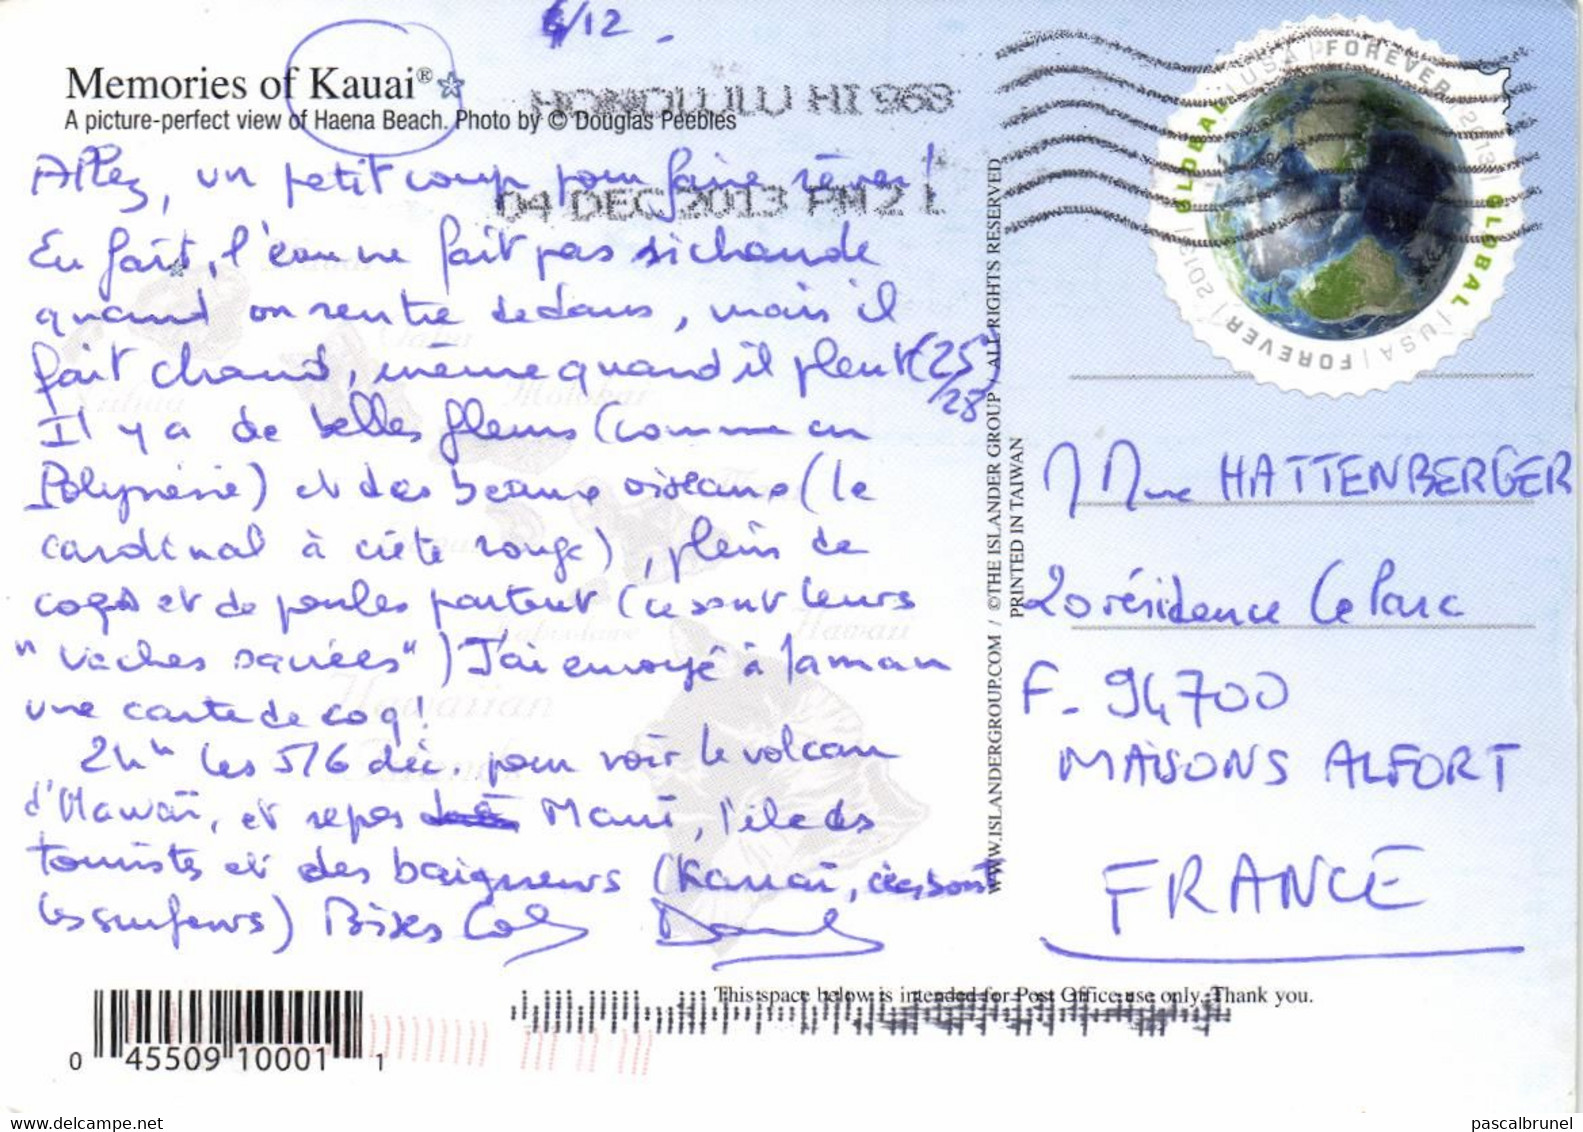 4/12.
Memories of Kauai®
A picture-perfect view of Haena Beach. Photo by © Douglas Peebles
HONOLULU HI 968
04 DEC 2013 PM 2 L
GLOBAL | USA | FOREVER | 2013 | GLOBAL | USA | FOREVER | 2013 |
Allez, un petit coup pour faire rêver!
En fait, l'eau ne fait pas si chaude
quand on rentre dedans, mais il
fait chaud, même quand il pleut (25/28)
Il y a de belles fleurs (comme en
Polynésie) et des beaux oiseaux (le
cardinal à crête rouge), plein de
coqs et de poules partout (ce sont leurs
"vaches sacrées") J'ai envoyé à
une carte de coq!
24h les 5/6 déc. pour voir le volcan
d'Hawaï, et Mauï, l'île des
touristes et des baigneurs (Kauaï,
les surfeurs) Bises
WWW.ISLANDERGROUP.COM / ©THE ISLANDER GROUP / ALL RIGHTS RESERVED
PRINTED IN TAIWAN
HATTENBERGER
20 résidence Le Parc
F. 94700
MAISONS ALFORT
FRANCE
This space below is intended for Post Office use only. Thank you.
0 45509 10001 1
www.delcampe.net
pascalbrunel